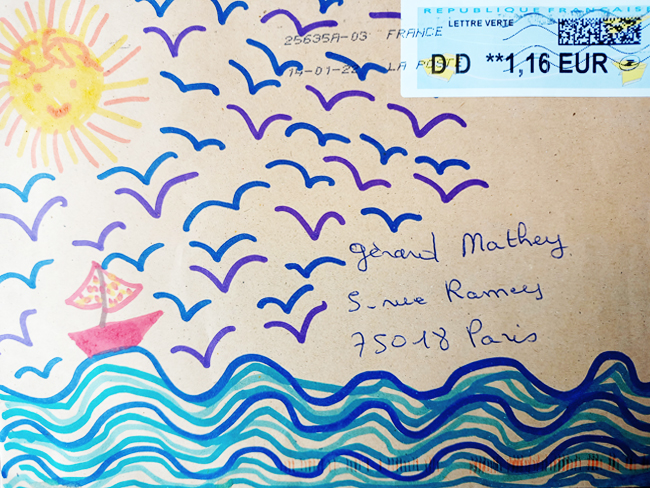 REPUBLIQUE FRANCAISE
LETTRE VERTE
DD **1,16 EUR
25635A-03 FRANCE
14-01-22 LA POSTE
Gérard Mathey
5 rue Ramey
75018 Paris